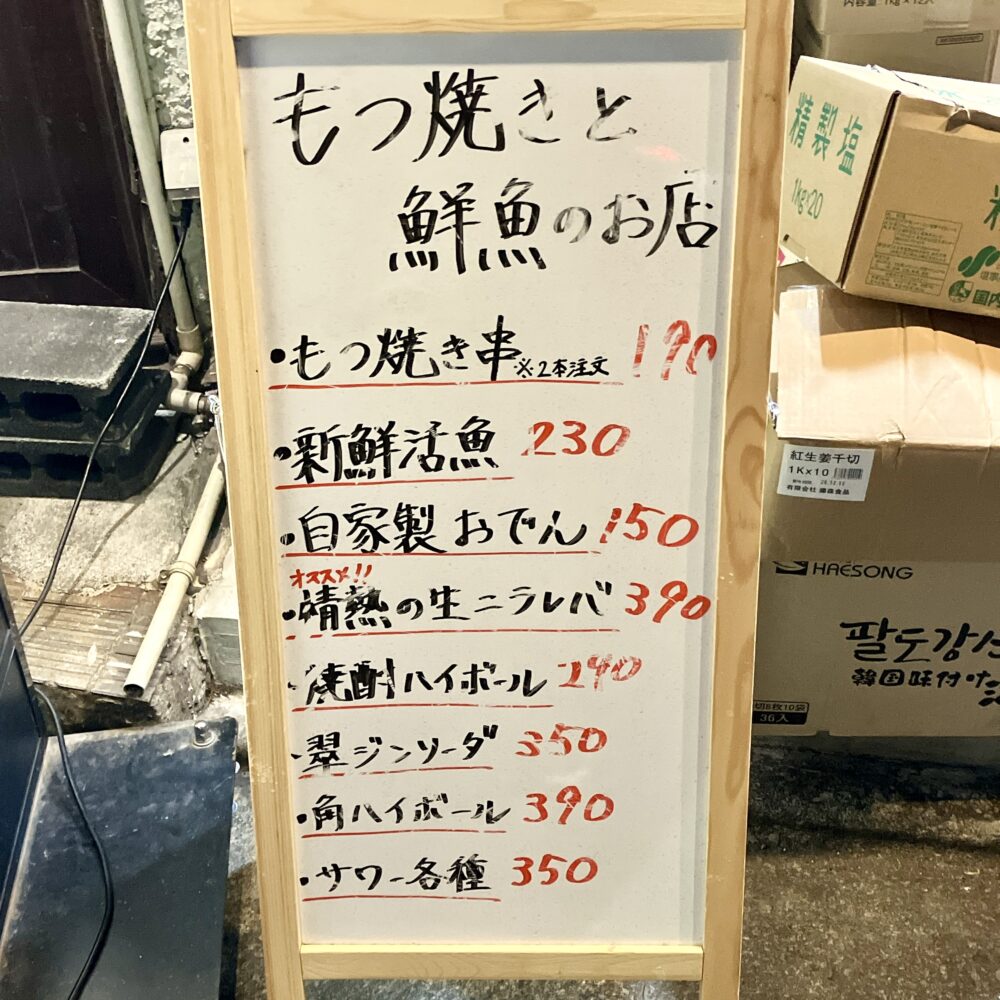 もつ焼きと
鮮魚のお店
・もつ焼き串 ※2本注文 190
・新鮮活魚 230
・自家製おでん 150
オススメ!!
・情熱の生ニラレバ 390
・焼酎ハイボール 290
・翠ジンソーダ 350
・角ハイボール 390
・サワー各種 350
精製塩
1Kg×20
紅生姜千切
1K×10
有限会社
HAESONG
팔도강산
韓国味付け
切8枚10袋
36入
国内